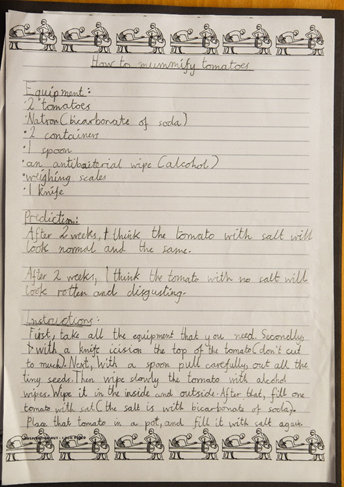 How to mummify tomatoes
Equipment:
·2 tomatoes
·Natron (bicarbonate of soda)
·2 containers
·1 spoon
·an antibacterial wipe (alcohol)
·weighing scales
·1 knife
Prediction:
After 2 weeks, I think the tomato with salt will
look normal and the same.
After 2 weeks, I think the tomato with no salt will
look rotten and disgusting.
Instructions:
First, take all the equipment that you need. Secondly
with a knife icision the top of the tomato (don't cut
to much). Next, with a spoon pull carefully out all the
tiny seeds. Then wipe slowly the tomato with alcohol
wipes. Wipe it in the inside and outside. After that, fill one
tomato with salt (the salt is with bicarbonate of soda).
Place that tomato in a pot, and fill it with salt again.